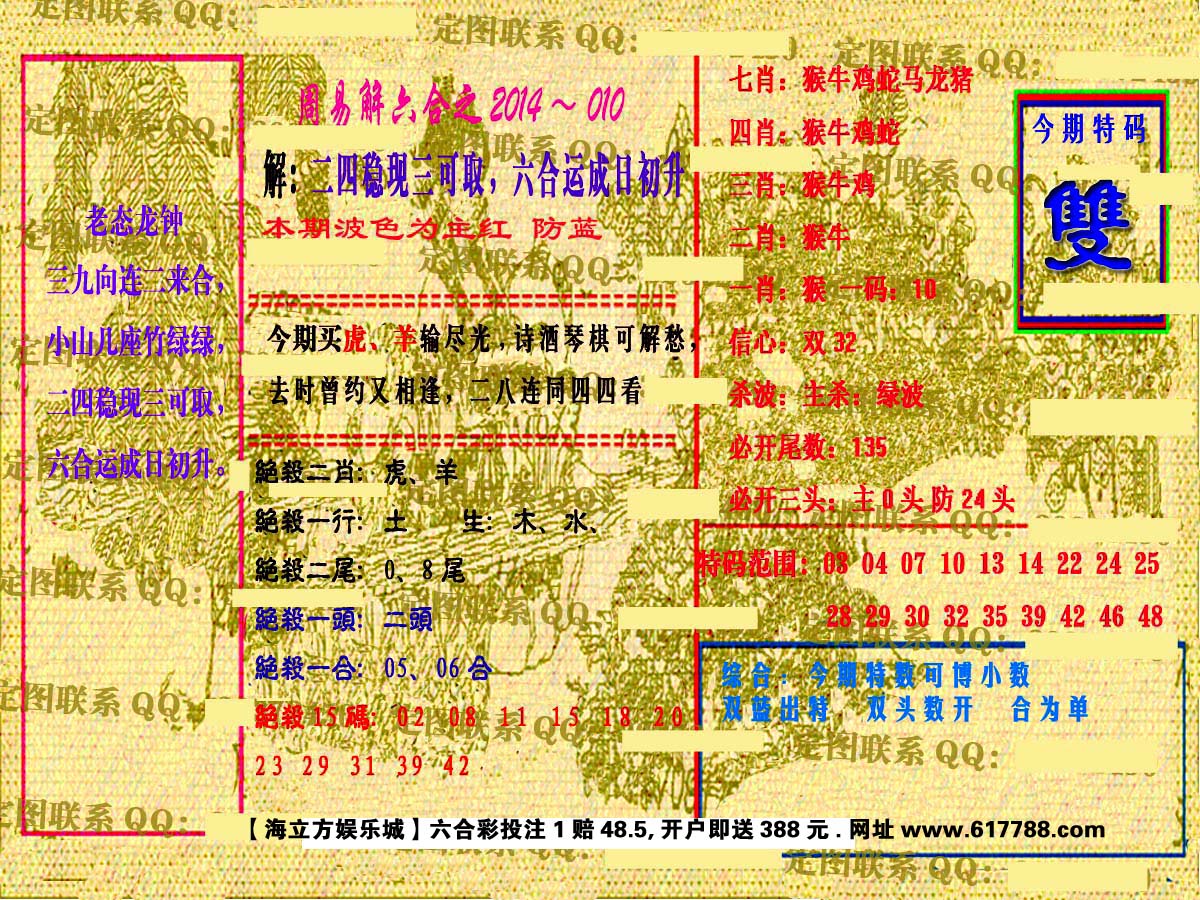 定图联系 QQ:
定图联系 QQ:
定图联系 QQ:
老态龙钟
三九向连二来合,
小山几座竹绿绿,
二四稳现三可取,
六合运成日初升。
周易解六合之 2014～010
解:二四稳现三可取，六合运成日初升
本期波色为主红 防蓝
今期买虎、羊输尽光,诗酒琴棋可解愁;
去时曾约又相逢，二八连同四四看
絕殺二肖: 虎、羊
絕殺一行: 土 生: 木、水、
絕殺二尾: 0、8尾
絕殺一頭: 二頭
絕殺一合: 05、06合
絕殺15碼: 02 08 11 15 18 20
23 29 31 39 42
七肖: 猴牛鸡蛇马龙猪
四肖: 猴牛鸡蛇
三肖: 猴牛鸡
二肖: 猴牛
一肖: 猴 一码: 10
信心: 双32
杀波: 主杀: 绿波
必开尾数: 135
必开三头: 主0头防24头
今期特码
雙
特码范围: 03 04 07 10 13 14 22 24 25
28 29 30 32 35 39 42 46 48
综合: 今期特数可博小数
双蓝出特 双头数开 合为单
定图联系 QQ:
【海立方娱乐城】六合彩投注1赔48.5,开户即送388元.网址www.617788.com
定图联系 QQ: